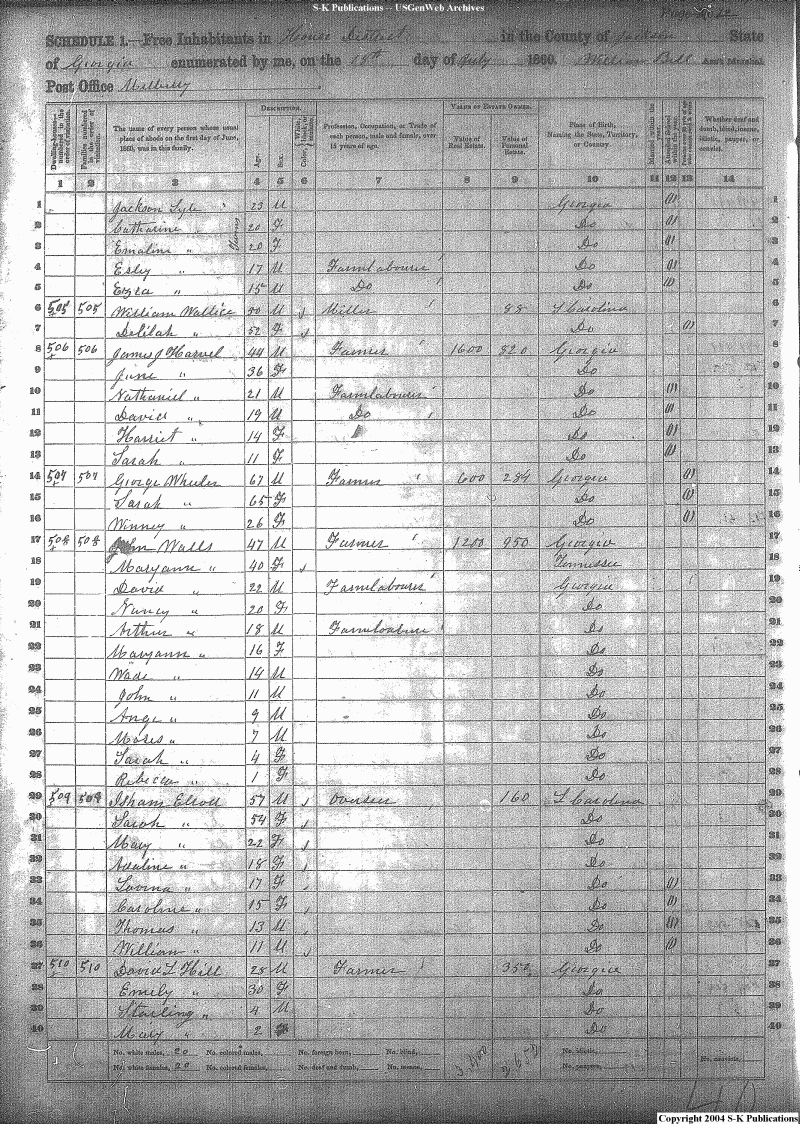 S-K Publications -- USGenWeb Archives
Page
SCHEDULE 1.—Free Inhabitants in House District in the County of Jackson State
of Georgia enumerated by me, on the 18th day of July 1860. William Bell Ass't Marshal.
Post Office
Dwelling-houses—numbered in the order of visitation. Families numbered in the order of visitation. The name of every person whose usual place of abode on the first day of June, 1860, was in this family. DESCRIPTION. Age. Sex. Color Profession, Occupation, or Trade of each person, male and female, over 15 years of age. VALUE OF ESTATE OWNED. Value of Real Estate. Value of Personal Estate. Place of Birth, Naming the State, Territory, or Country. Married within the year. Attended School within the year. Whether deaf and dumb, blind, insane, idiotic, pauper, or convict.
1 2 3 4 5 6 7 8 9 10 11 12 13 14
1 Jackson Lyle 23 M Georgia (1) 1
2 Catharine " 20 F Do (1) 2
3 Emaline " 20 F Do (1) 3
4 Esley " 17 M Farmlabourer Do (1) 4
5 Ezra " 15 M Do Do (1) 5
6 505 505 William Wallice 50 M Miller 88 S Carolina 6
7 Delilah " 52 F Do (1) 7
8 506 506 James J Harvel 44 M Farmer 1600 820 Georgia 8
9 June " 36 F Do 9
10 Nathaniel " 21 M Farmlabourer Do (1) 10
11 David " 19 M Do Do (1) 11
12 Harriet " 14 F Do (1) 12
13 Sarah " 11 F Do (1) 13
14 507 507 George Wheeler 67 M Farmer 600 284 Georgia (1) 14
15 Sarah " 65 F Do (1) 15
16 Winney " 26 F Do (1) 16
17 508 508 John Walls 47 M Farmer 1200 950 Georgia 17
18 Maryann " 40 F Tennessee 18
19 David " 22 M Farmlabourer Georgia 19
20 Nancy " 20 F Do 20
21 Arthur " 18 M Farmlabourer Do 21
22 Maryann " 16 F Do 22
23 Wade " 14 M Do 23
24 John " 11 M Do 24
25 Ange " 9 M Do 25
26 Moses " 7 M Do 26
27 Sarah " 4 F Do 27
28 Rebecca " 1 F Do 28
29 509 509 Isham Ellott 57 M Overseer 160 S Carolina 29
30 Sarah " 54 F Do 30
31 Mary " 22 F Do 31
32 Adaline " 18 F Do 32
33 Lovina " 17 F Do (1) 33
34 Caroline " 15 F Do (1) 34
35 Thomas " 13 M Do (1) 35
36 William " 11 M Do (1) 36
37 510 510 David L Hill 25 M Farmer 350 Georgia 37
38 Emily " 30 F Do 38
39 Starling " 4 M Do 39
40 Mary " 2 F Do 40
No. white males, 20 No. colored males, No. foreign born, No. blind, 3,400 2652 No. idiotic,
No. white females, 20 No. colored females, No. deaf and dumb, No. insane, No. paupers, No. convicts,
40
Copyright 2004 S-K Publications